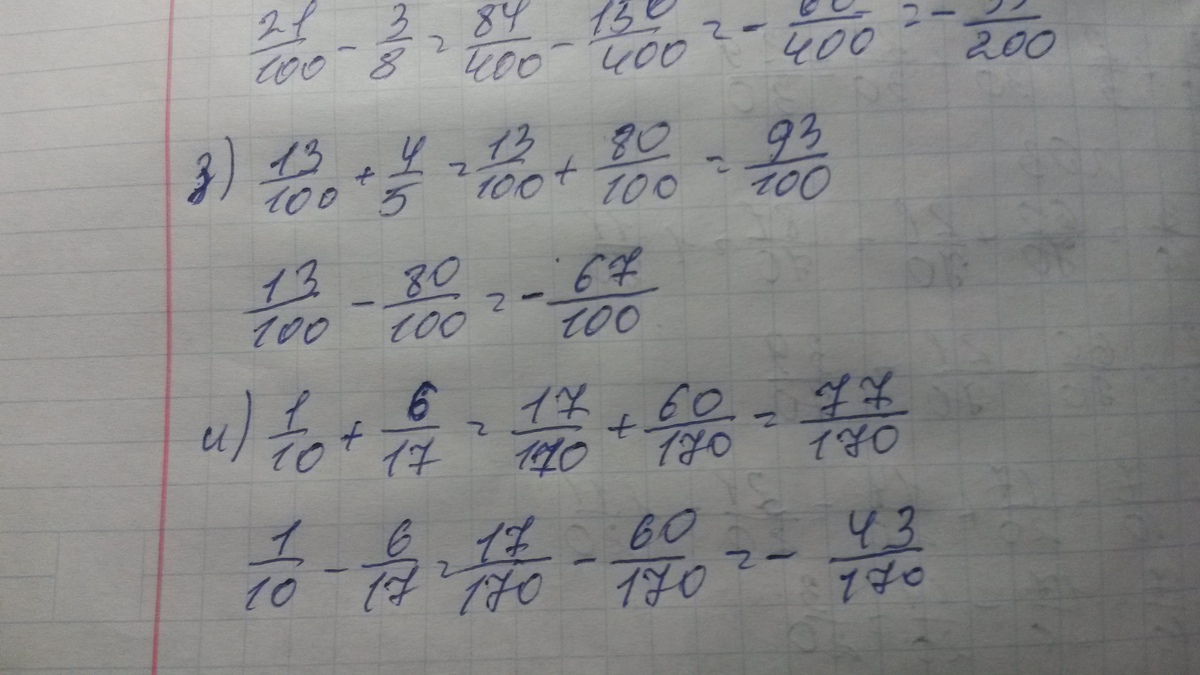 21/100 - 3/8 = 84/400 - 150/400 = - /400 = - /200
з) 13/100 + 4/5 = 13/100 + 80/100 = 93/100
13/100 - 80/100 = - 67/100
и) 1/10 + 6/17 = 17/170 + 60/170 = 77/170
1/10 - 6/17 = 17/170 - 60/170 = - 43/170